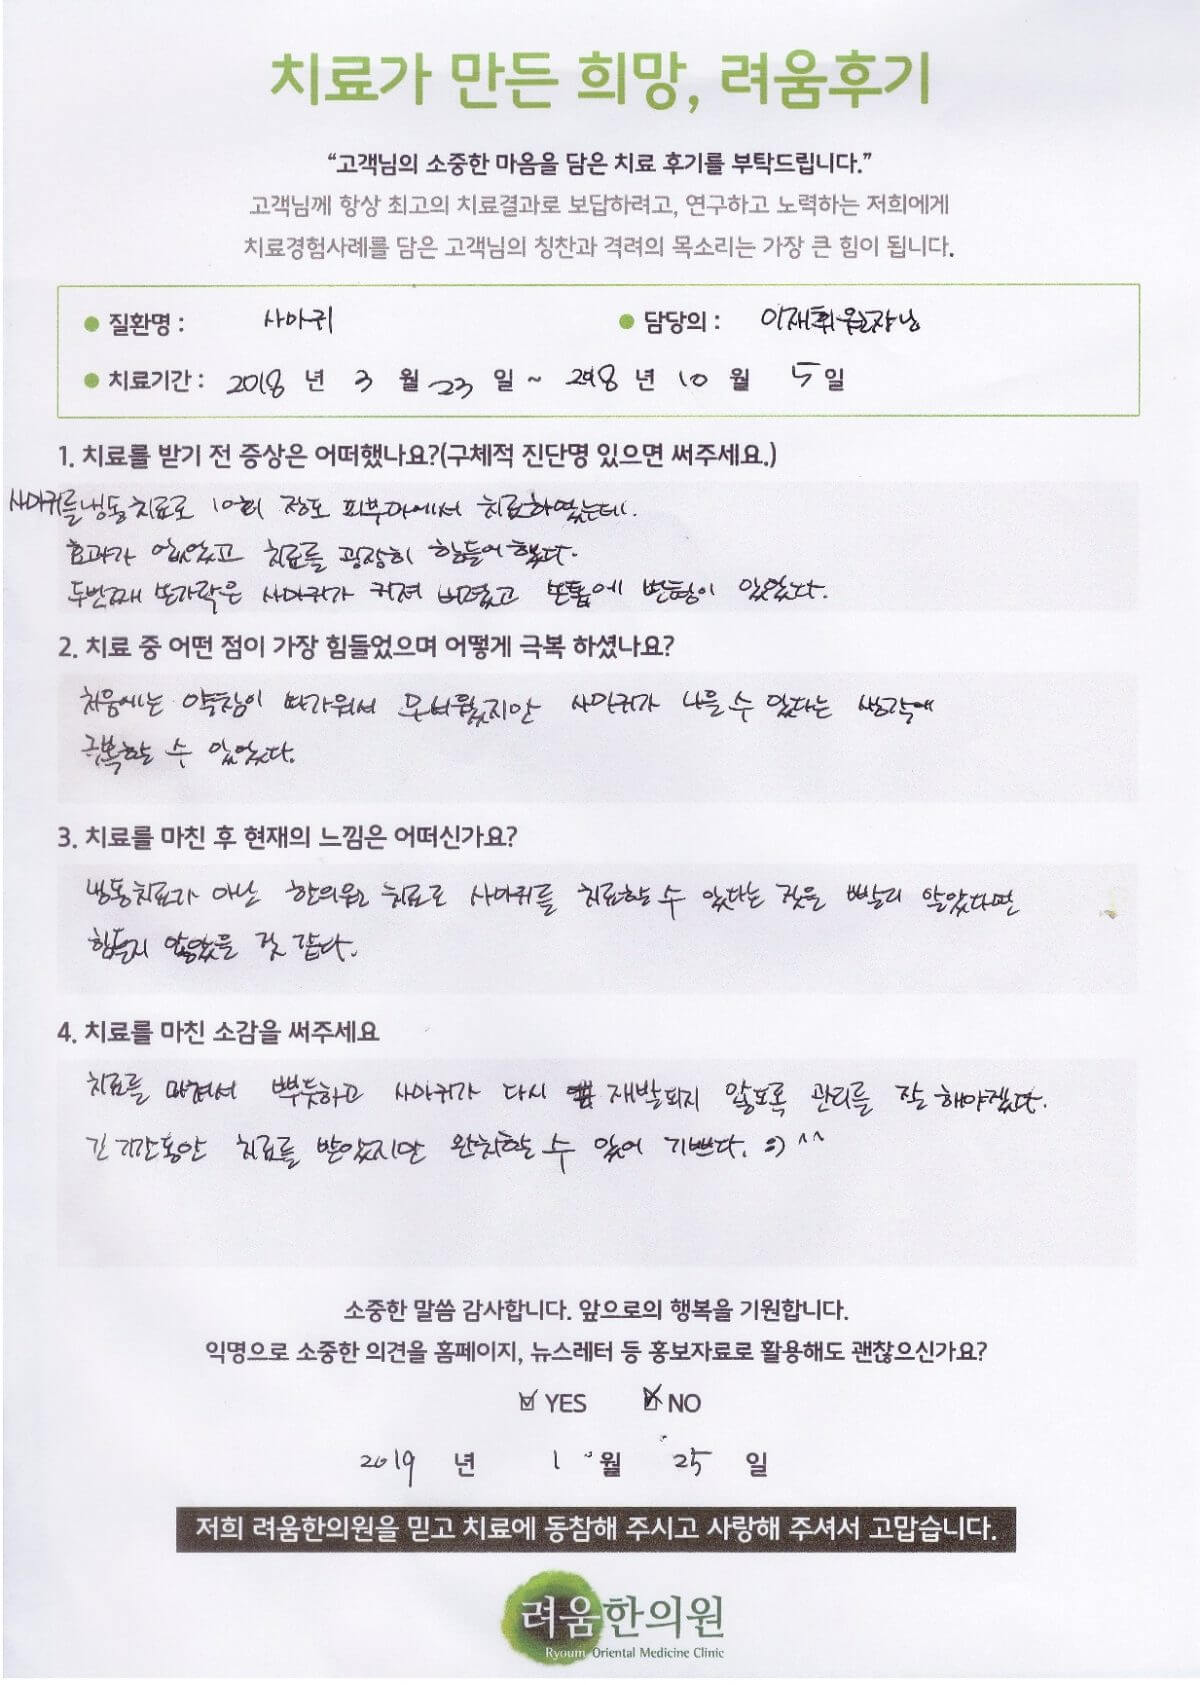 치료가 만든 희망, 려움후기
“고객님의 소중한 마음을 담은 치료 후기를 부탁드립니다.”
고객님께 항상 최고의 치료결과로 보답하려고, 연구하고 노력하는 저희에게
치료경험사례를 담은 고객님의 칭찬과 격려의 목소리는 가장 큰 힘이 됩니다.
● 질환명 : 사마귀 ● 담당의 : 이재휘 원장님
● 치료기간 : 2018 년 3 월 23 일 ~ 2018 년 10 월 5 일
1. 치료를 받기 전 증상은 어떠했나요?(구체적 진단명 있으면 써주세요.)
사마귀를 냉동치료로 10회 정도 피부과에서 치료하였는데.
효과가 없었고 치료를 굉장히 힘들어 했다.
두번째 손가락은 사마귀가 커져 버렸고 손톱에 변형이 있었다.
2. 치료 중 어떤 점이 가장 힘들었으며 어떻게 극복 하셨나요?
처음에는 약침이 따가워서 무서웠지만 사마귀가 나을 수 있다는 생각에
극복할 수 있었다.
3. 치료를 마친 후 현재의 느낌은 어떠신가요?
냉동치료가 아닌 한의원 치료로 사마귀를 치료할 수 있다는 것을 빨리 알았다면
힘들지 않았을 것 같다.
4. 치료를 마친 소감을 써주세요
치료를 마쳐서 뿌듯하고 사마귀가 다시 재발되지 않도록 관리를 잘 해야겠다.
긴 기간동안 치료를 받았지만 완치할 수 있어 기쁘다. :) ^^
소중한 말씀 감사합니다. 앞으로의 행복을 기원합니다.
익명으로 소중한 의견을 홈페이지, 뉴스레터 등 홍보자료로 활용해도 괜찮으신가요?
☑ YES ☒ NO
2019 년 1 월 25 일
저희 려움한의원을 믿고 치료에 동참해 주시고 사랑해 주셔서 고맙습니다.
려움한의원
Ryoum Oriental Medicine Clinic